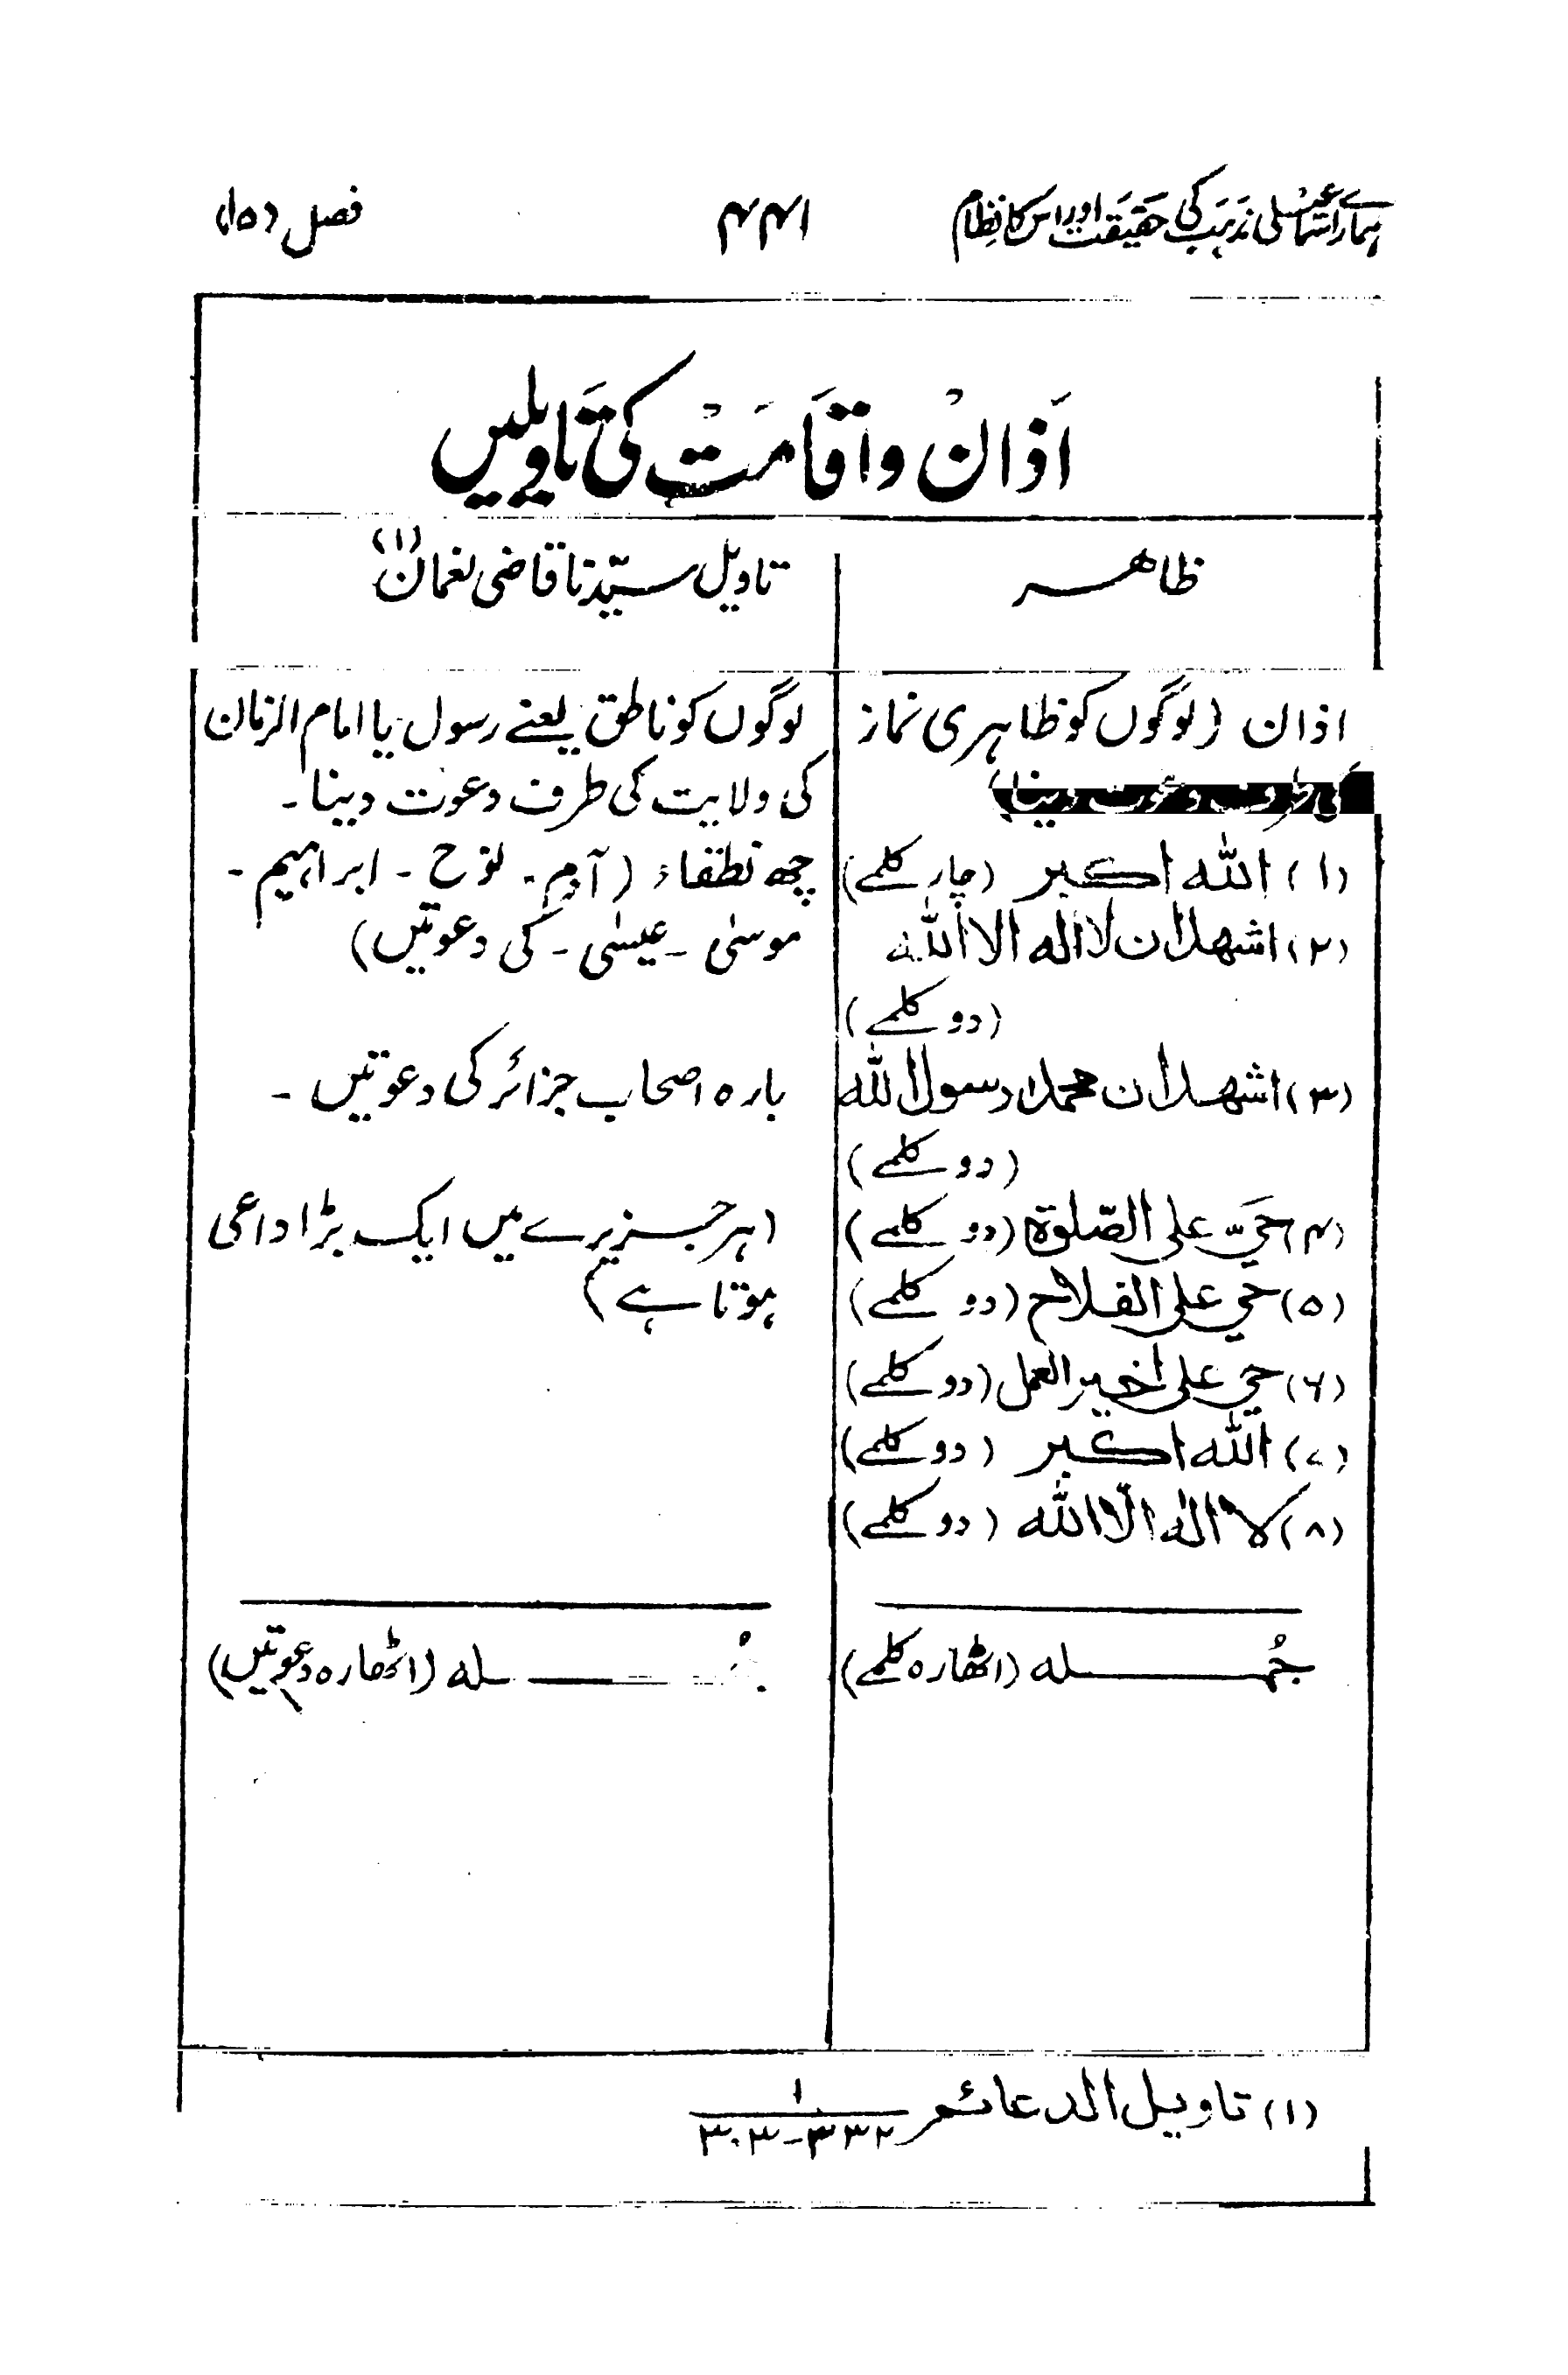 ہمارے اسماعیلی مذہب کی حقیقت اور اس کا نظام ۴۴۱ فصل (۱۵)
اَذانْ واقَامَتْ کی تَاویلیں
ظاہر
تاویل سیّدنا قاضی نعمان (۱)
اذان (لوگوں کو ظاہری نماز
کی طرف دعوت دینا)
لوگوں کو ناطق یعنے رسول یا امام الزمان
کی ولایت کی طرف دعوت دینا۔
(۱) اللہ اکبر (چار کلمے)
(۲) اشھد ان لا الہ الا اللہ
(دو کلمے)
چھ نطقاء (آدم۔ نوح ۔ ابراہیم ۔
موسیٰ ۔ عیسیٰ ۔ کی دعوتیں)
(۳) اشھد ان محمدا رسول اللہ
(دو کلمے)
بارہ اصحاب جزائر کی دعوتیں ۔
(۴) حَیَّ علی الصّلوۃ (دو کلمے)
(۵) حی علی الفلاح (دو کلمے)
(۶) حی علی اخیر العمل (دو کلمے)
(۷) اللہ اکبر (دو کلمے)
(۸) لا الہ الّا اللہ (دو کلمے)
(ہر جزیرے میں ایک بڑا داعی
ہوتا ہے)
جُملہ (اٹھارہ کلمے)
جُملہ (اٹھارہ دعوتیں)
(۱) تاویل الدعائم ۱
۳۰۳-۳۳۲